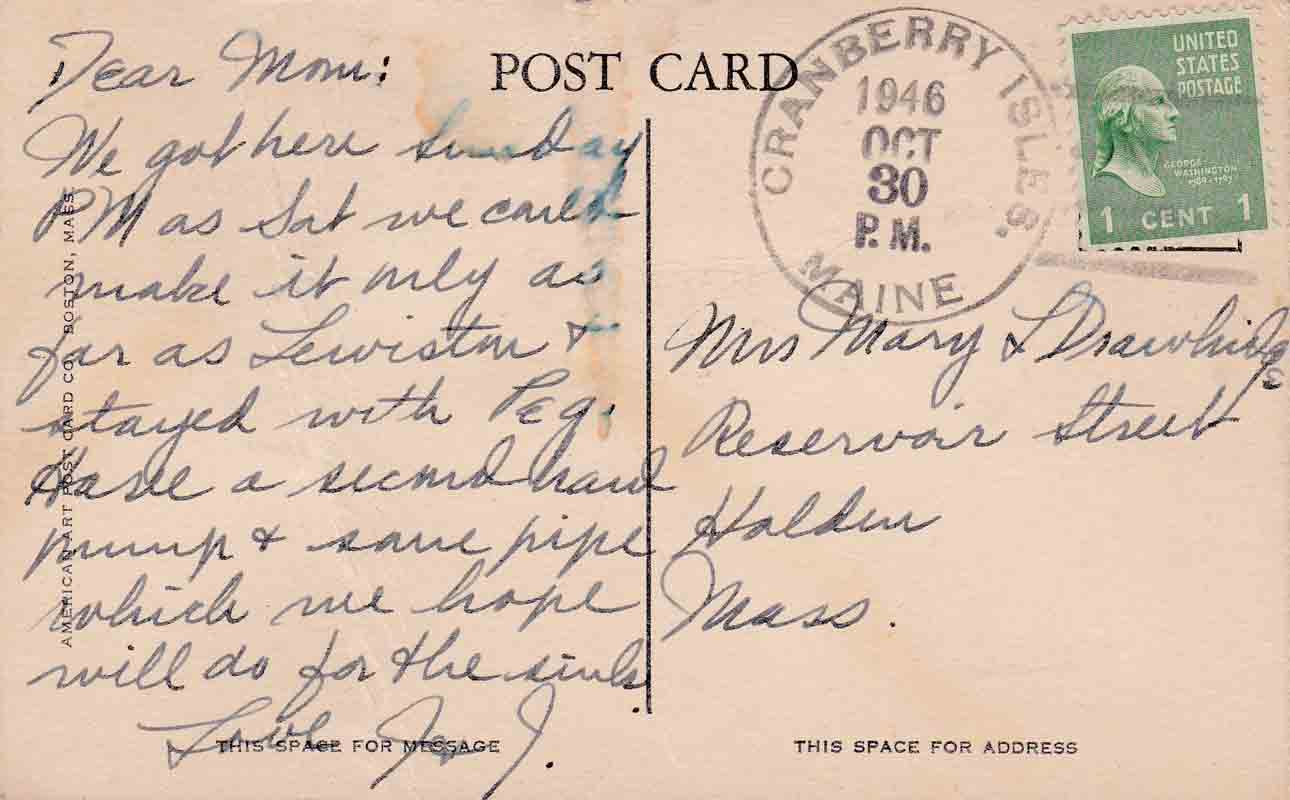 POST CARD
Dear Mom:
We got here Sunday
PM as Sat we could
make it only as
far as Lewiston &
stayed with Peg.
Have a second hand
pump & some pipe
which we hope
will do for the sink
Love J & J.
THIS SPACE FOR MESSAGE
AMERICAN ART POST CARD CO. BOSTON, MASS.
CRANBERRY ISLES.
1946
OCT
30
P.M.
MAINE
UNITED
STATES
POSTAGE
GEORGE
WASHINGTON
1789-1797
1 CENT 1
Mrs Mary L
Reservoir Street
Holden
Mass.
THIS SPACE FOR ADDRESS